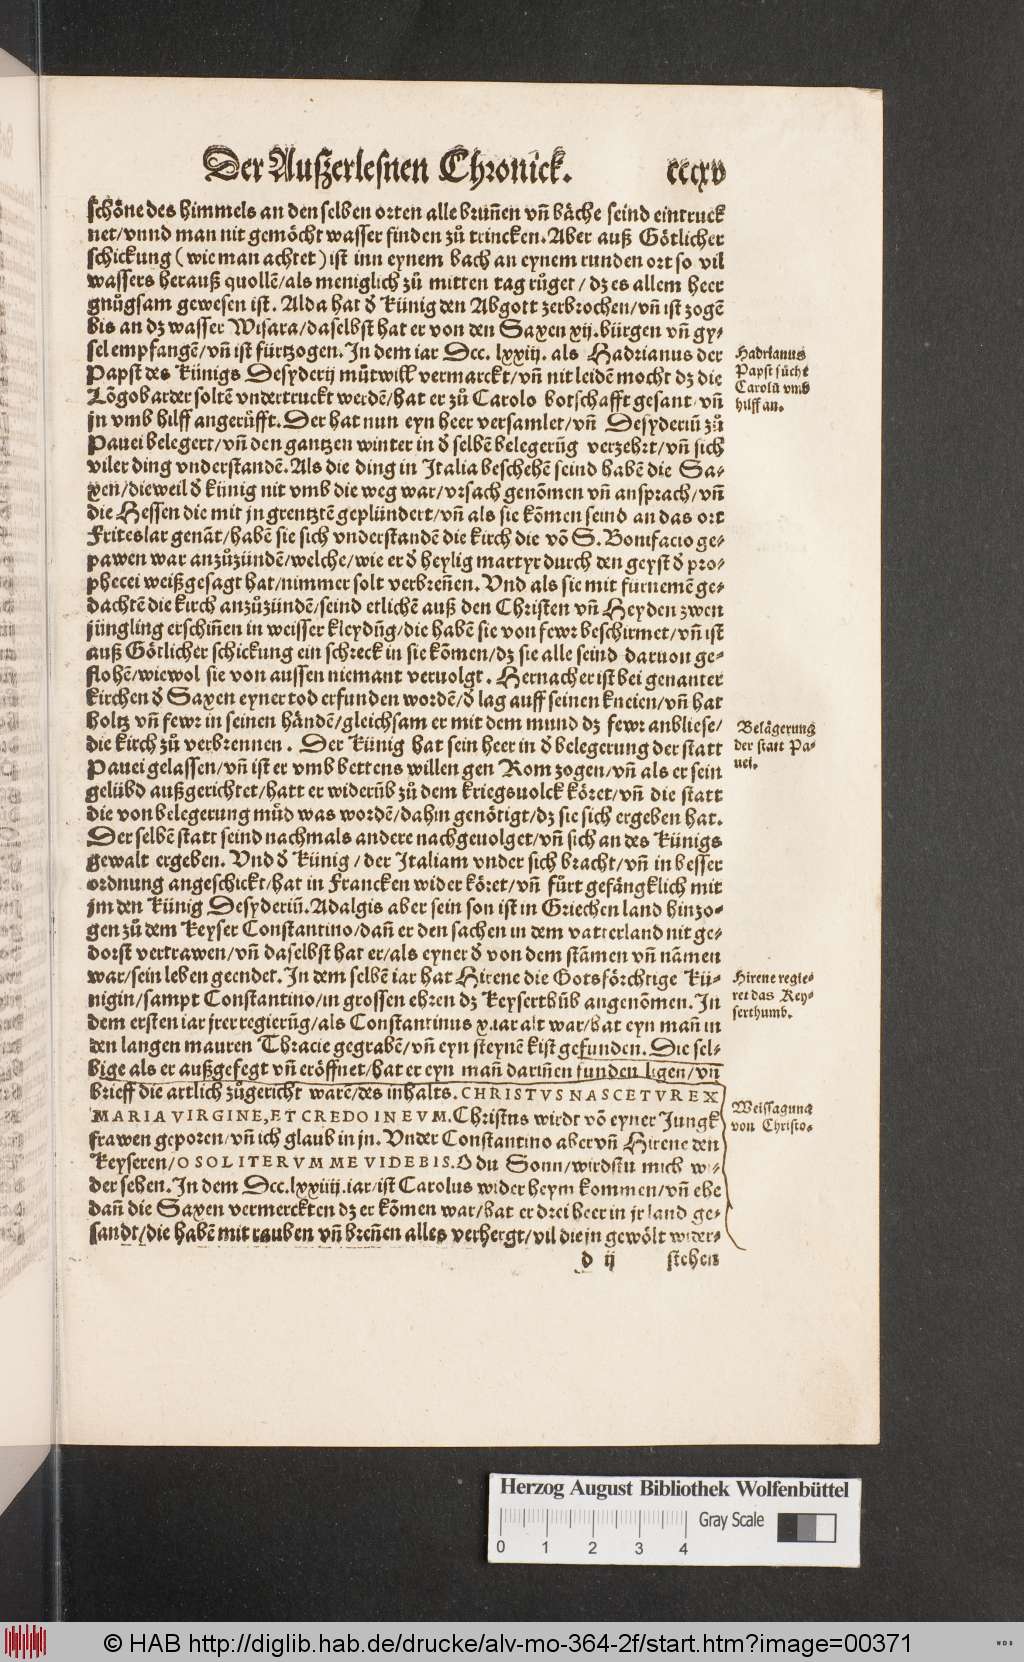 Der Außerlesnen Chronick. cccxv
schöne des himmels an den selben orten alle brun̄en vn̄ bäche seind eintruck
net/vnnd man nit gemöcht wasser finden zů trincken. Aber auß Götlicher
schickung (wie man achtet) ist inn eynem bach an eynem runden ort so vil
wassers herauß quollē/als meniglich zů mitten tag růget/dz es allem heer
gnůgsam gewesen ist. Alda hat d̄ Künig den Abgott zerbrochen/vn̄ ist zogē
bis an dz wasser Wisara/daselbst hat er von den Saxen xij. bürgen vn̄ gy-
sel empfangē/vn̄ ist fürtzogen. In dem iar Dcc. lxxiij. als Hadrianus der
Papst des Künigs Desyderij můtwill vermarckt/vn̄ nit leidē mocht dz die
Lōgobarder soltē vndertruckt werdē/hat er zů Carolo botschafft gesant/vn̄
jn vmb hilff angerůfft. Der hat nun eyn heer versamlet/vn̄ Desyderiū zů
Pauei belegert/vn̄ den gantzen winter in d̄ selbē belegerūg verzehrt/vn̄ sich
viler ding vnderstandē. Als die ding in Italia beschehē seind habē die Sa-
xen/dieweil d̄ künig nit vmb die weg war/vrsach genōmen vn̄ ansprach/vn̄
die Hessen die mit jn grentztē geplündert/vn̄ als sie kōmen seind an das ort
Friteslar genāt/habē sie sich vnderstandē die kirch die vō S. Bonifacio ge-
pawen war anzůzündē/welche/wie er d̄ heylig martyr durch den geyst d̄ pro-
phecei weißgesagt hat/nimmer solt verbren̄en. Vnd als sie mit fürnemē ge-
dachtē die kirch anzůzündē/seind etlichē auß den Christen vn̄ Heyden zwen
jüngling erschin̄en in weisser kleydūg/die habē sie von fewr beschirmet/vn̄ ist
auß Götlicher schickung ein schreck in sie kōmen/dz sie alle seind daruon ge-
flohē/wiewol sie von aussen niemant veruolgt. Hernacher ist bei genanter
kirchen d̄ Saxen eyner tod erfunden wordē/d̄ lag auff seinen kneien/vn̄ hat
holtz vn̄ fewr in seinen händē/gleichsam er mit dem mund dz fewr anbliese/
die kirch zů verbrennen. Der Künig hat sein heer in d̄ belegerung der statt
Pauei gelassen/vn̄ ist er vmb bettens willen gen Rom zogen/vn̄ als er sein
gelübd außgerichtet/hatt er widerūb zů dem kriegsuolck köret/vn̄ die statt
die von belegerung můd was wordē/dahin genötigt/dz sie sich ergeben hat.
Der selbē statt seind nachmals andere nachgeuolget/vn̄ sich an des Künigs
gewalt ergeben. Vnd d̄ Künig/der Italiam vnder sich bracht/vn̄ in besser
ordnung angeschickt/hat in Francken wider köret/vn̄ fůrt gefängklich mit
jm den Künig Desyderiū. Adalgis aber sein son ist in Griechen land hinzo-
gen zů dem Keyser Constantino/dan̄ er den sachen in dem vatterland nit ge-
dorst vertrawen/vn̄ daselbst hat er/als eyner d̄ von dem stāmen vn̄ nāmen
war/sein leben geendet. In dem selbē iar hat Hirene die Gotsförchtige Kü-
nigin/sampt Constantino/in grossen ehren dz Keyserthūb angenōmen. In
dem ersten iar jrer regierūg/als Constantinus x. iar alt war/hat eyn man̄ in
den langen mauren Thracie gegrabē/vn̄ eyn steynē kist gefunden. Die sel-
bige als er außgefegt vn̄ eröffnet/hat er eyn man̄ darin̄en funden ligen/vn̄
brieff die artlich zůgericht warē/des inhalts. CHRISTVS NASCETVR EX
MARIA VIRGINE, ET CREDO IN EVM. Christus wirdt vō eyner Jungk
frawen geporen/vn̄ ich glaub in jn. Vnder Constantino aber vn̄ Hirene den
Keyseren/O SOL ITERVM ME VIDEBIS. O du Sonn/wirdstu mich wi-
der sehen. In dem Dcc. lxxiiij. iar/ist Carolus wider heym kommen/vn̄ ehe
dan̄ die Saxen vermerckten dz er kōmen war/hat er drei heer in jr land ge-
sandt/die habē mit rauben vn̄ bren̄en alles verhergt/vil die jn gewölt wider-
d ij stehen
Hadrianus
Papst sücht
Carolū vmb
hilff an.
Belägerung
der statt Pa-
uei.
Hirene regie-
ret das Key-
serthumb.
Weissagung
von Christo.
Herzog August Bibliothek Wolfenbüttel
Gray Scale
0 1 2 3 4
© HAB http://diglib.hab.de/drucke/alv-mo-364-2f/start.htm?image=00371